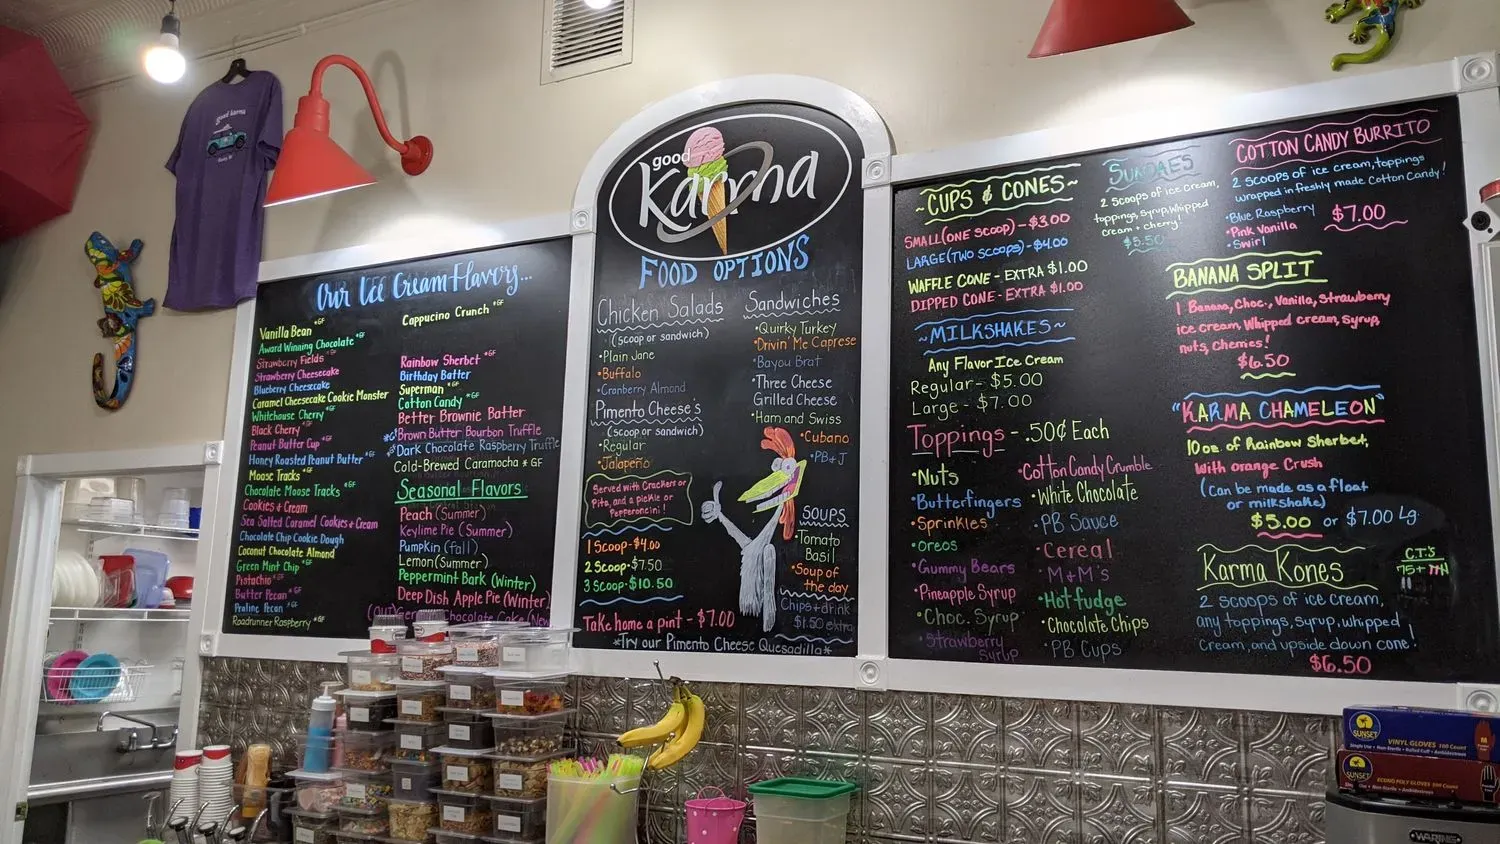 good karma
Our Ice Cream Flavors...
Vanilla Bean *GF
Award Winning Chocolate *GF
Strawberry Fields *GF
Strawberry Cheesecake
Blueberry Cheesecake
Caramel Cheesecake Cookie Monster
Whitehouse Cherry *GF
Black Cherry *GF
Peanut Butter Cup *GF
Honey Roasted Peanut Butter *GF
Moose Tracks *GF
Chocolate Moose Tracks *GF
Cookies & Cream
Sea Salted Caramel Cookies & Cream
Chocolate Chip Cookie Dough
Coconut Chocolate Almond
Green Mint Chip *GF
Pistachio *GF
Butter Pecan *GF
Praline Pecan *GF
Roadrunner Raspberry *GF
Cappucino Crunch *GF
Rainbow Sherbet *GF
Birthday Batter
Superman *GF
Cotton Candy *GF
Better Brownie Batter
*GF Brown Butter Bourbon Truffle
*GF Dark Chocolate Raspberry Truffle
Cold-Brewed Caramocha *GF
Seasonal Flavors
Peach (Summer)
Keylime Pie (Summer)
Pumpkin (fall)
Lemon (Summer)
Peppermint Bark (Winter)
Deep Dish Apple Pie (Winter)
(OUT) German Chocolate Cake (New
good
Karma
FOOD OPTIONS
Chicken Salads
(scoop or sandwich)
•Plain Jane
•Buffalo
•Cranberry Almond
Pimento Cheese's
(scoop or sandwich)
•Regular
•Jalapeño
Served with Crackers or
Pita, and a pickle or
Pepperoncini!
1 Scoop-$4.00
2 Scoop-$7.50
3 Scoop-$10.50
Take home a pint - $7.00
*Try our Pimento Cheese Quesadilla*
Sandwiches
•Quirky Turkey
•Drivin' Me Caprese
•Bayou Brat
•Three Cheese
Grilled Cheese
•Ham and Swiss
•Cubano
•PB+J
SOUPS
•Tomato
Basil
•Soup of
the day
Chips+drink
$1.50 extra
~CUPS & CONES~
SMALL(ONE SCOOP)-$3.00
LARGE(TWO SCOOPS)-$4.00
WAFFLE CONE - EXTRA $1.00
DIPPED CONE - EXTRA $1.00
~MILKSHAKES~
Any Flavor Ice Cream
Regular- $5.00
Large - $7.00
Toppings - .50¢ Each
•Nuts
•Butterfingers
•Sprinkles
•Oreos
•Gummy Bears
•Pineapple Syrup
•Choc. Syrup
•Strawberry
Syrup
•Cotton Candy Crumble
•White Chocolate
•PB Sauce
•Cereal
•M&M's
•Hot fudge
•Chocolate Chips
•PB Cups
SUNDAES
2 scoops of ice cream,
toppings, syrup, whipped
cream + cherry!
$5.50
COTTON CANDY BURRITO
2 scoops of ice cream, toppings
wrapped in freshly made Cotton Candy!
•Blue Raspberry
•Pink Vanilla
•Swirl
$7.00
BANANA SPLIT
1 Banana, Choc., Vanilla, Strawberry
ice cream, Whipped cream, Syrup,
nuts, Cherries!
$6.50
"KARMA CHAMELEON"
10 oz of Rainbow Sherbet,
With Orange Crush
(Can be made as a float
or milkshake)
$5.00 or $7.00 Lg.
Karma Kones
2 scoops of ice cream,
any toppings, syrup, whipped
Cream, and upside down cone!
$6.50
C.T.'S
75+
SUNSET
VINYL GLOVES 100 Count
SUNSET
ECONO POLY GLOVES
WARING